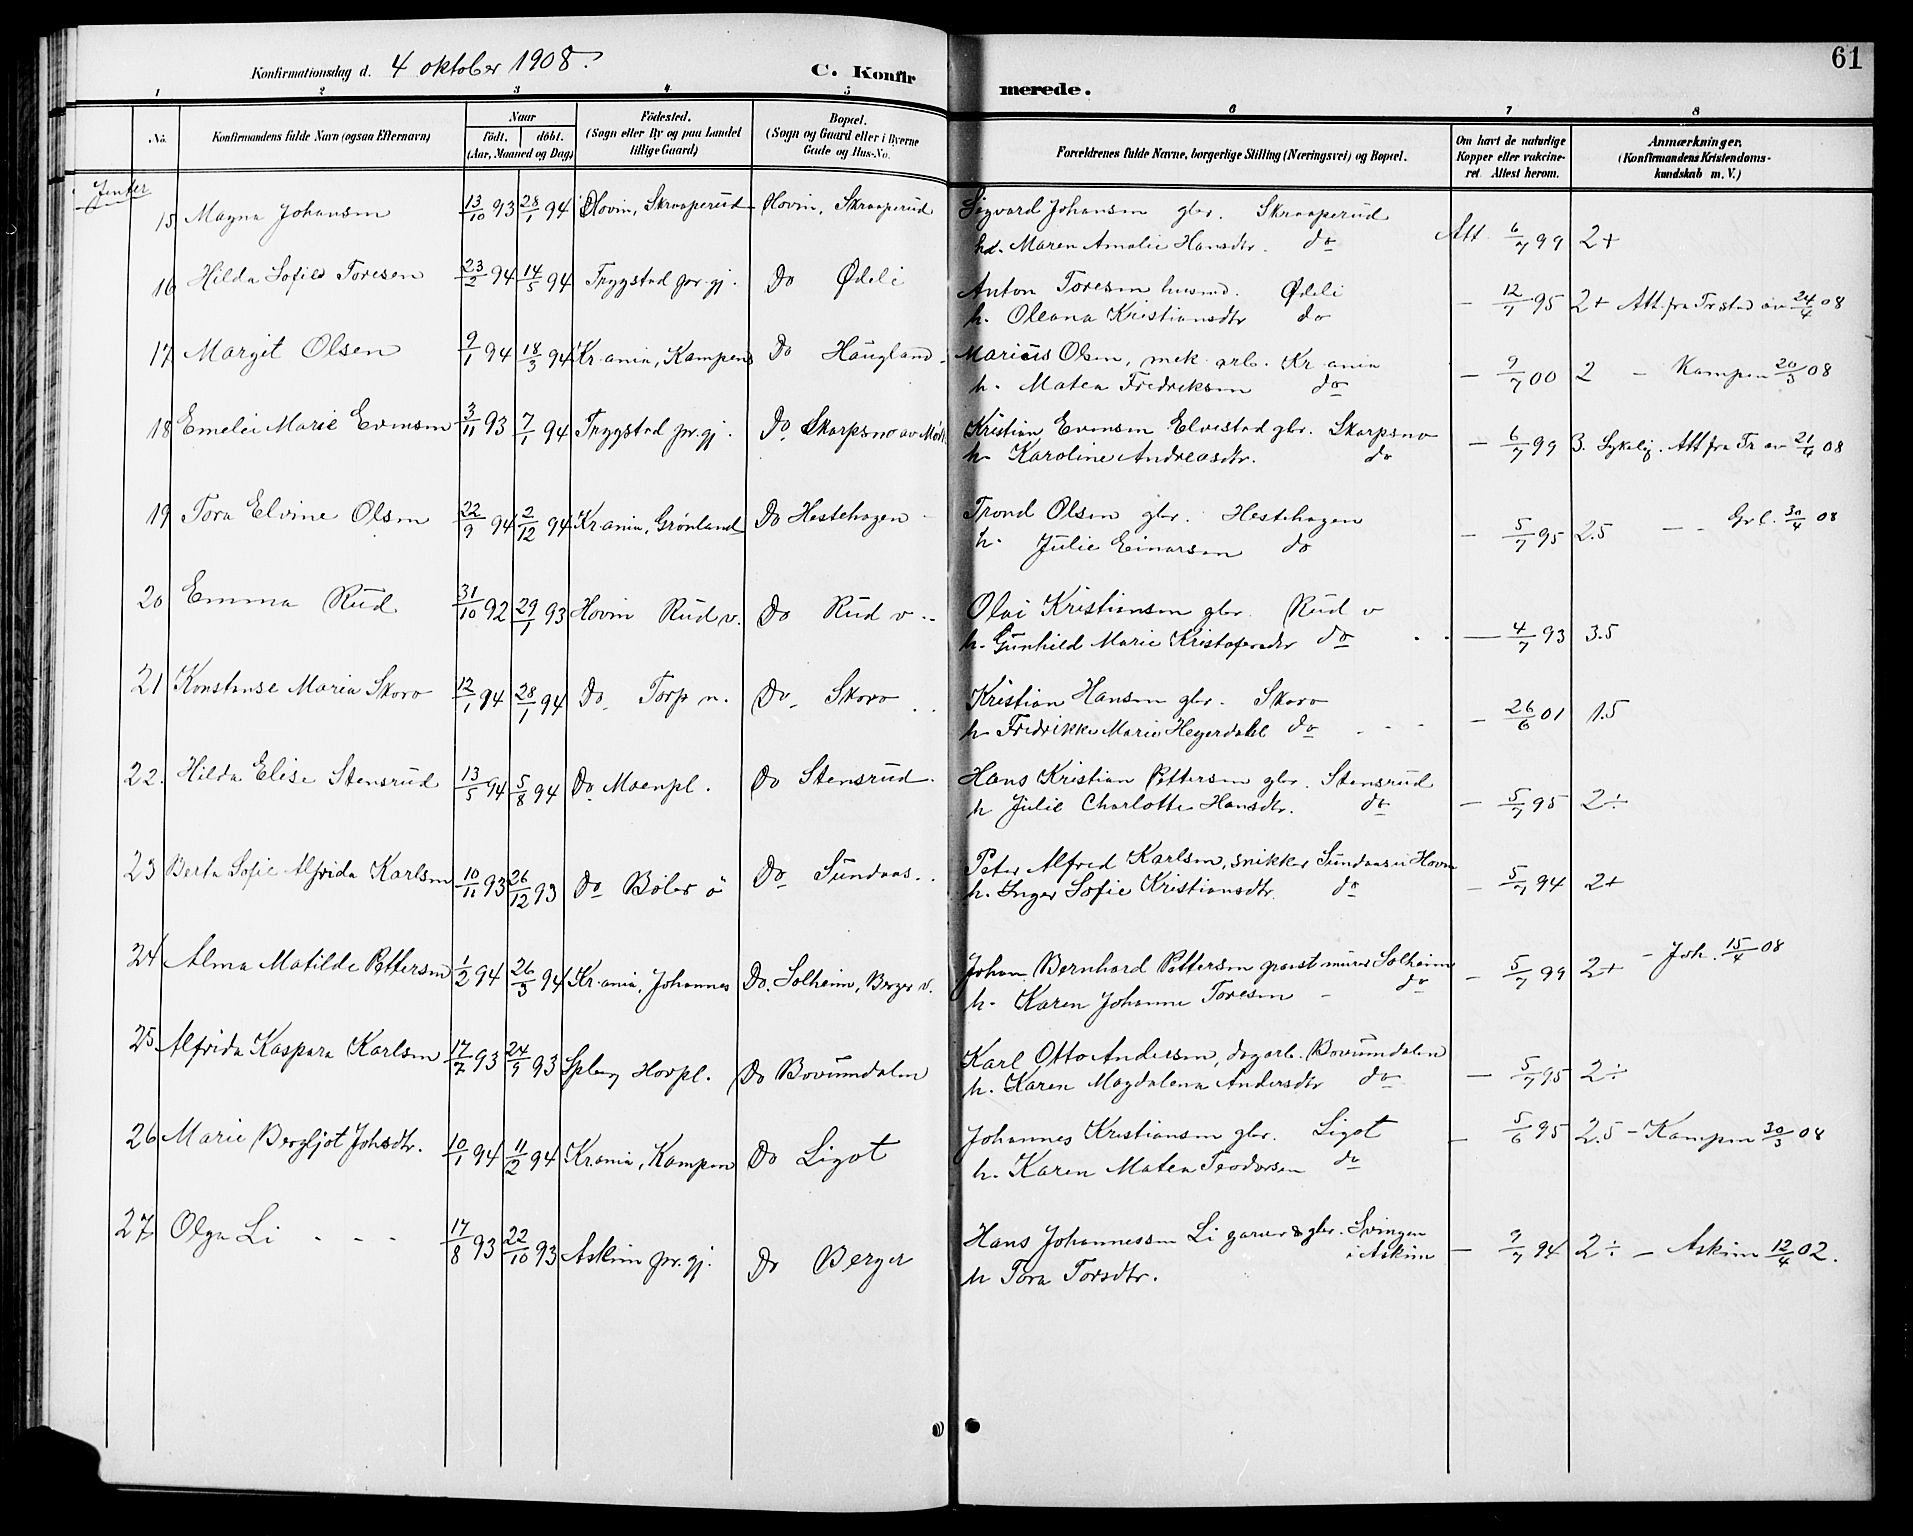 61
Konfirmationsdag d. 4 oktober 1908.
C. Konfir
merede.
1 2 3 4 5 6 7 8
No. Konfirmandens fulde Navn (ogsaa Efternavn) Naar født. døbt. (Aar, Maaned og Dag) Fødested. (Sogn eller By og paa Landet tillige Gaard) Bopæl. (Sogn og Gaard eller i Byerne Gade og Hus-No. Forældrenes fulde Navne, borgerlige Stilling (Næringsvei) og Bopæl. Om havt de naturlige Kopper eller vakcineret. Attest herom. Anmærkninger. (Konfirmandens Kristendomskundskab m. V.)
Jenter
15 Magna Johansen 13/10 93 28/1 94 Hovin, Skraaperud Hovin, Skraaperud Sigvard Johansen gbr. Skraaperud
h. Maren Amalie Hansdtr. do Att. 6/7 99 2+
16 Hilda Sofie Toresen 23/2 94 14/5 94 Trygstad pr.gj. Do Ødeli Anton Toresen husmd. Ødeli
h. Oleana Kristiansdtr do - 12/7 95 2+ Att. fra Trstad av 24/4 08
17 Margit Olsen 9/1 94 18/3 94 Kr.ania, Kampens Do Haugland Marius Olsen, mek. arb. Kr.ania
h. Matea Fredriksen do - 9/7 00 2 - Kampen 20/3 08
18 Emelie Marie Evensen 3/11 93 7/1 94 Trygstad pr.gj. Do Skarpsno av Kristian Evensen Elvestad gbr. Skarpsno
h. Karoline Andreasdtr. do - 6/7 99 3. Sykelig. Att fra Tr av 21/4 08
19 Tora Elvine Olsen 22/9 94 2/12 94 Kr.ania, Grønland Do Hestehagen Trond Olsen gbr. Hestehagen
h. Julie Einarsen do - 5/7 95 2.5 - - Grl. 30/4 08
20 Emma Rud 31/10 92 29/1 93 Hovin Rud v. Do Rud v. Olai Kristiansen gbr. Rud v
h. Gunhild Marie Kristofersdtr do - 4/7 93 3.5
21 Konstanse Maria Skoro 12/1 94 28/1 94 Do Torp n. Do Skoro Kristian Hansen gbr. Skoro
h. Fredrikke Marie Heyerdahl do - 26/6 01 1.5
22. Hilda Elise Stensrud 13/5 94 5/8 94 Do Moenpl. Do Stensrud. Hans Kristian Pettersen gbr. Stensrud
h Julie Charlotte Hansdtr. do - 5/7 95 2÷
23 Berta Sofie Alfrida Karlsen 10/11 93 26/12 93 Do Bøler ö Do Sundaas. Peter Alfred Karlsen, snikker Sundaas i Hovin
h. Inger Sofie Kristiansdtr. do - 5/7 94 2+
24 Alma Matilde Pettersen 1/2 94 26/3 94 Kr.ania, Johannes Do. Solheim, Berger v. Johan Bernhard Pettersen murer Solheim
h. Karen Johanne Toresen - do - 5/7 99 2+ - Joh. 15/4 08
25 Alfrida Kaspara Karlsen 17/7 93 24/9 93 Spberg Hovpl. Do Bovumdalen Karl Otto Andersen, dagarb. Bovumdalen
h. Karen Magdalena Andersdtr do - 5/7 95 2÷
26 Marie Bergljot Johsdtr. 10/1 94 11/2 94 Kr.ania, Kampen Do Ligot Johannes Kristiansen gbr. Ligot
h. Karen Matea Teodorsen do - 5/6 95 2.5 - Kampen 30/3 08
27 Olga Li - - - 17/8 93 22/10 93 Askim pr.gj. Do Berger Hans Johannessen Li garver & gbr. Svingen
i Askim
h Tora Torsdtr. - 9/7 94 2÷ - Askim 12/4 02.